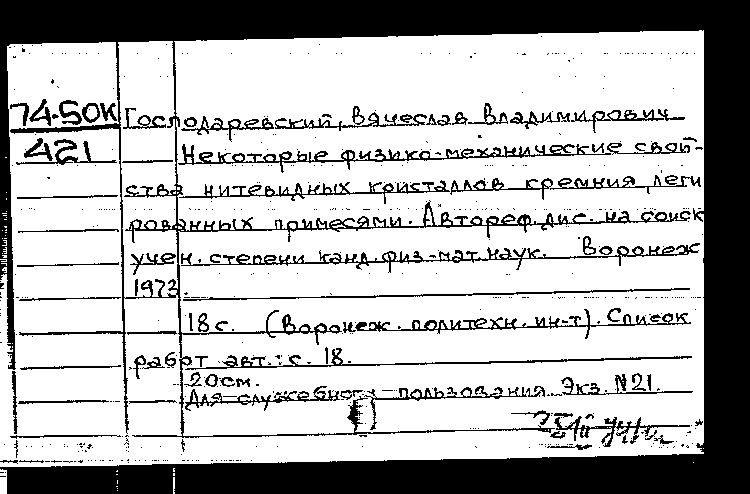 74-50К Господаревский, Вячеслав Владимирович
421 Некоторые физико-механические свой-
ства нитевидных кристаллов кремния, леги
рованных примесями. Автореф. дис. на соиск
учен. степени канд. физ-мат. наук. Воронеж
1973.
18 с. (Воронеж. политехн. ин-т). Список
работ авт.: с. 18.
20 см.
Для служебного пользования Экз. N21.